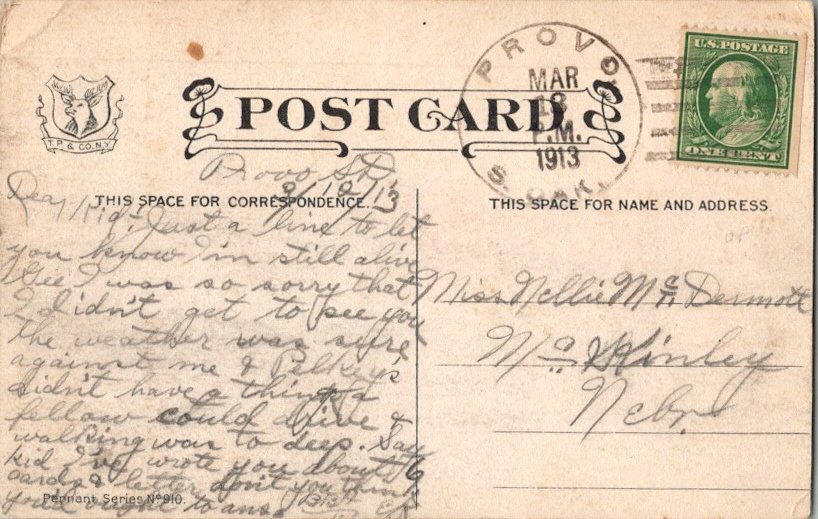 PROVO
MAR
P.M.
1913
S. DAK.
U.S. POSTAGE
ONE CENT
T.P. & CO. N.Y.
POST CARD.
Provo SD
THIS SPACE FOR CORRESPONDENCE.
THIS SPACE FOR NAME AND ADDRESS.
Dear Kid, Just a line to let
you know I'm still alive
Gee I was so sorry that
I didn't get to see you
the weather was sure
against me & Palkeys
didn't have a thing a
fellow could drive &
walking was to deep. Say
kid I've wrote you about 6
cards & letter don't you think
you'd ought to ans.
Miss Nellie McDermott
McKinley
Nebr
Pennant Series No 910.